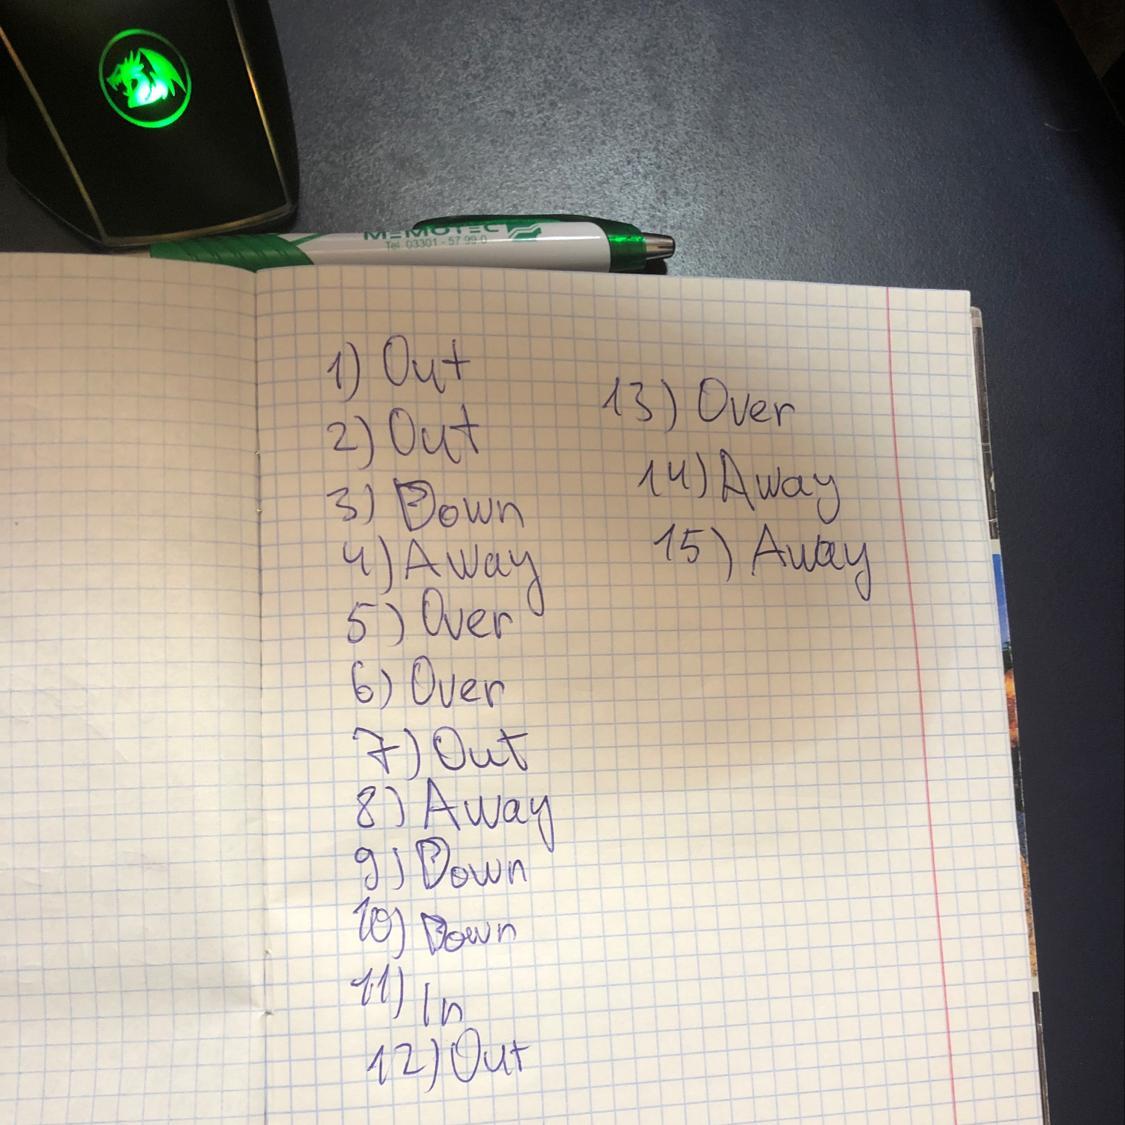 MEMOTEC
Tel. 03301 - 57 99 0
1) Out
2) Out
3) Down
4) Away
5) Over
6) Over
7) Out
8) Away
9) Down
10) Down
11) In
12) Out
13) Over
14) Away
15) Away